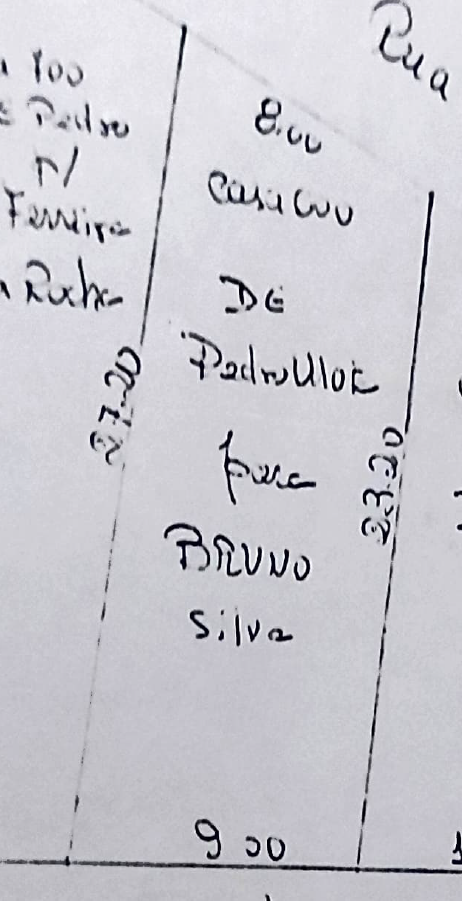 Rua
100
Pedro
p/
Ferreira
Rocha
8.00
DE
Pedro
27.20
23.20
para
BRUNO
Silva
9 00